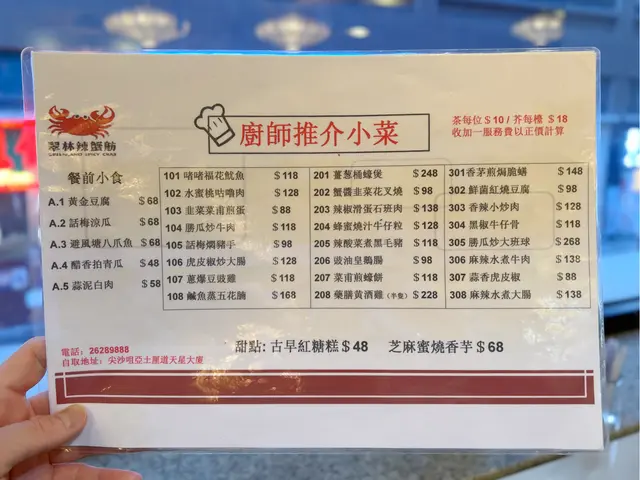 翠林辣蟹舫
GREENLAND SPICY CRAB
廚師推介小菜
茶每位 $10 / 芥每檯 $18
收加一服務費以正價計算
餐前小食
A.1 黃金豆腐 $68
A.2 話梅涼瓜 $68
A.3 避風塘八爪魚 $68
A.4 醋香拍青瓜 $48
A.5 蒜泥白肉 $58
101 啫啫福花魷魚 $118
102 水蜜桃咕嚕肉 $128
103 韭菜菜甫煎蛋 $88
104 勝瓜炒牛肉 $118
105 話梅燜豬手 $98
106 虎皮椒炒大腸 $128
107 蔥爆豆豉雞 $118
108 鹹魚蒸五花腩 $168
201 薑蔥桶蠔煲 $248
202 蟹醬韭菜花叉燒 $98
203 辣椒滑蛋石班肉 $138
204 蜂蜜燒汁牛仔粒 $128
205 辣酸菜煮黑毛豬 $118
206 豉油皇鵝腸 $98
207 菜甫煎蠔餅 $118
208 藥膳黃酒雞 (半隻) $228
301 香茅煎焗脆鱔 $148
302 鮮菌紅燒豆腐 $98
303 香辣小炒肉 $128
304 黑椒牛仔骨 $118
305 勝瓜炒大班球 $268
306 麻辣水煮牛肉 $138
307 蒜香虎皮椒 $88
308 麻辣水煮大腸 $138
甜點: 古早紅糖糕 $48 芝麻蜜燒香芋 $68
電話: 26289888
自取地址: 尖沙咀亞士厘道天星大廈